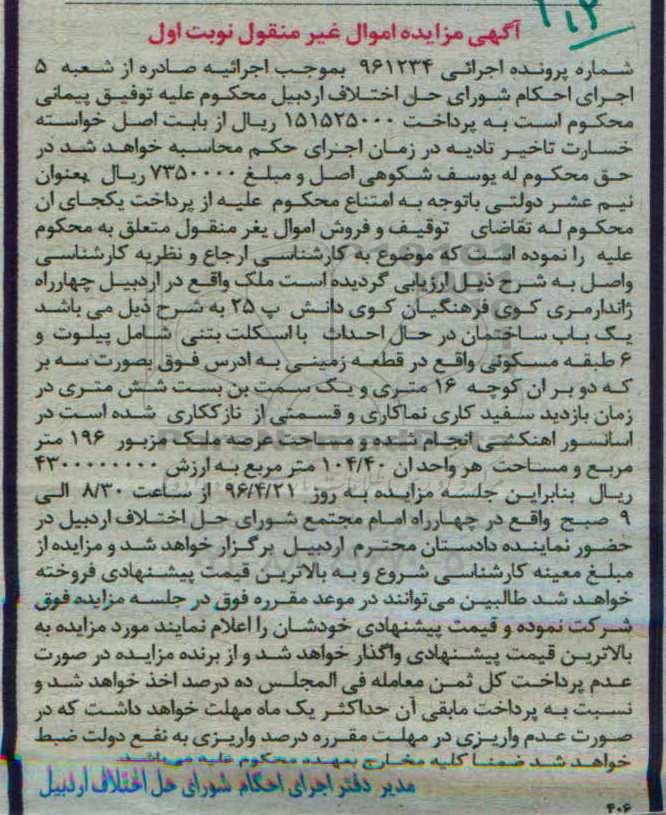 ۲۱۳
آگهی مزایده اموال غیر منقول نوبت اول
شماره پرونده اجرائی ۹۶۱۲۳۴ بموجب اجرائیه صادره از شعبه ۵
اجرای احکام شورای حل اختلاف اردبیل محکوم علیه توفیق پیمانی
محکوم است به پرداخت ۱۵۱۵۲۵۰۰۰ ریال از بابت اصل خواسته
خسارت تاخیر تادیه در زمان اجرای حکم محاسبه خواهد شد در
حق محکوم له یوسف شکوهی اصل و مبلغ ۷۳۵۰۰۰۰ ریال بعنوان
نیم عشر دولتی باتوجه به امتناع محکوم علیه از پرداخت یکجای ان
محکوم له تقاضای توقیف و فروش اموال یغر منقول متعلق به محکوم
علیه را نموده است که موضوع به کارشناسی ارجاع و نظریه کارشناسی
واصل به شرح ذیل ارزیابی گردیده است ملک واقع در اردبیل چهارراه
ژاندارمری کوی فرهنگیان کوی دانش پ ۲۵ به شرح ذیل می باشد
یک باب ساختمان در حال احداث با اسکلت بتنی شامل پیلوت و
۶ طبقه مسکونی واقع در قطعه زمینی به ادرس فوق بصورت سه بر
که دو بر ان کوچه ۱۶ متری و یک سمت بن بست شش متری در
زمان بازدید سفید کاری نماکاری و قسمتی از نازککاری شده است در
اسانسور اهنکشی انجام شده و مساحت عرصه ملک مزبور ۱۹۶ متر
مربع و مساحت هر واحد ان ۱۰۴/۴۰ متر مربع به ارزش ۴۳۰۰۰۰۰۰۰۰۰
ریال بنابراین جلسه مزایده به روز ۹۶/۴/۲۱ از ساعت ۸/۳۰ الی
۹ صبح واقع در چهارراه امام مجتمع شورای حل اختلاف اردبیل در
حضور نماینده دادستان محترم اردبیل برگزار خواهد شد و مزایده از
مبلغ معینه کارشناسی شروع و به بالاترین قیمت پیشنهادی فروخته
خواهد شد طالبین می‌توانند در موعد مقرره فوق در جلسه مزایده فوق
شرکت نموده و قیمت پیشنهادی خودشان را اعلام نمایند مورد مزایده به
بالاترین قیمت پیشنهادی واگذار خواهد شد و از برنده مزایده در صورت
عدم پرداخت کل ثمن معامله فی المجلس ده درصد اخذ خواهد شد و
نسبت به پرداخت مابقی آن حداکثر یک ماه مهلت خواهد داشت که در
صورت عدم واریزی در مهلت مقرره درصد واریزی به نفع دولت ضبط
خواهد شد ضمنا کلیه مخارج بعهده محکوم علیه می‌باشد.
مدیر دفتر اجرای احکام شورای حل اختلاف اردبیل
۴۰۶